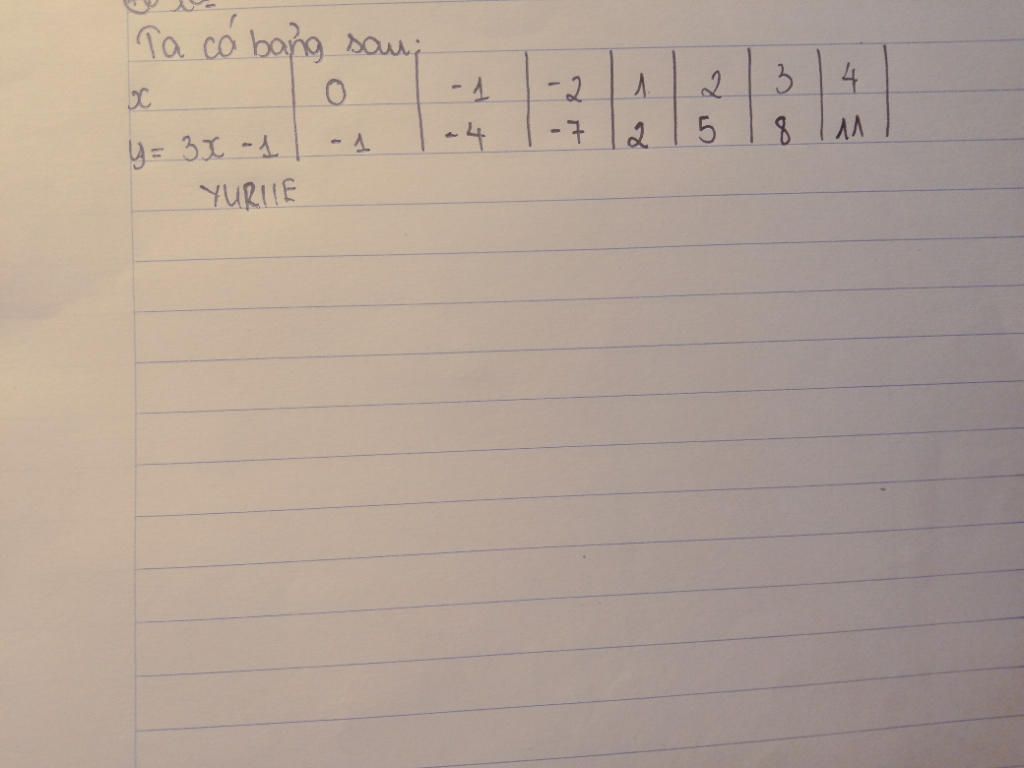 Ta có bảng sau:
x 0 -1 -2 1 2 3 4
y = 3x - 1 -1 -4 -7 2 5 8 11
YURIIE